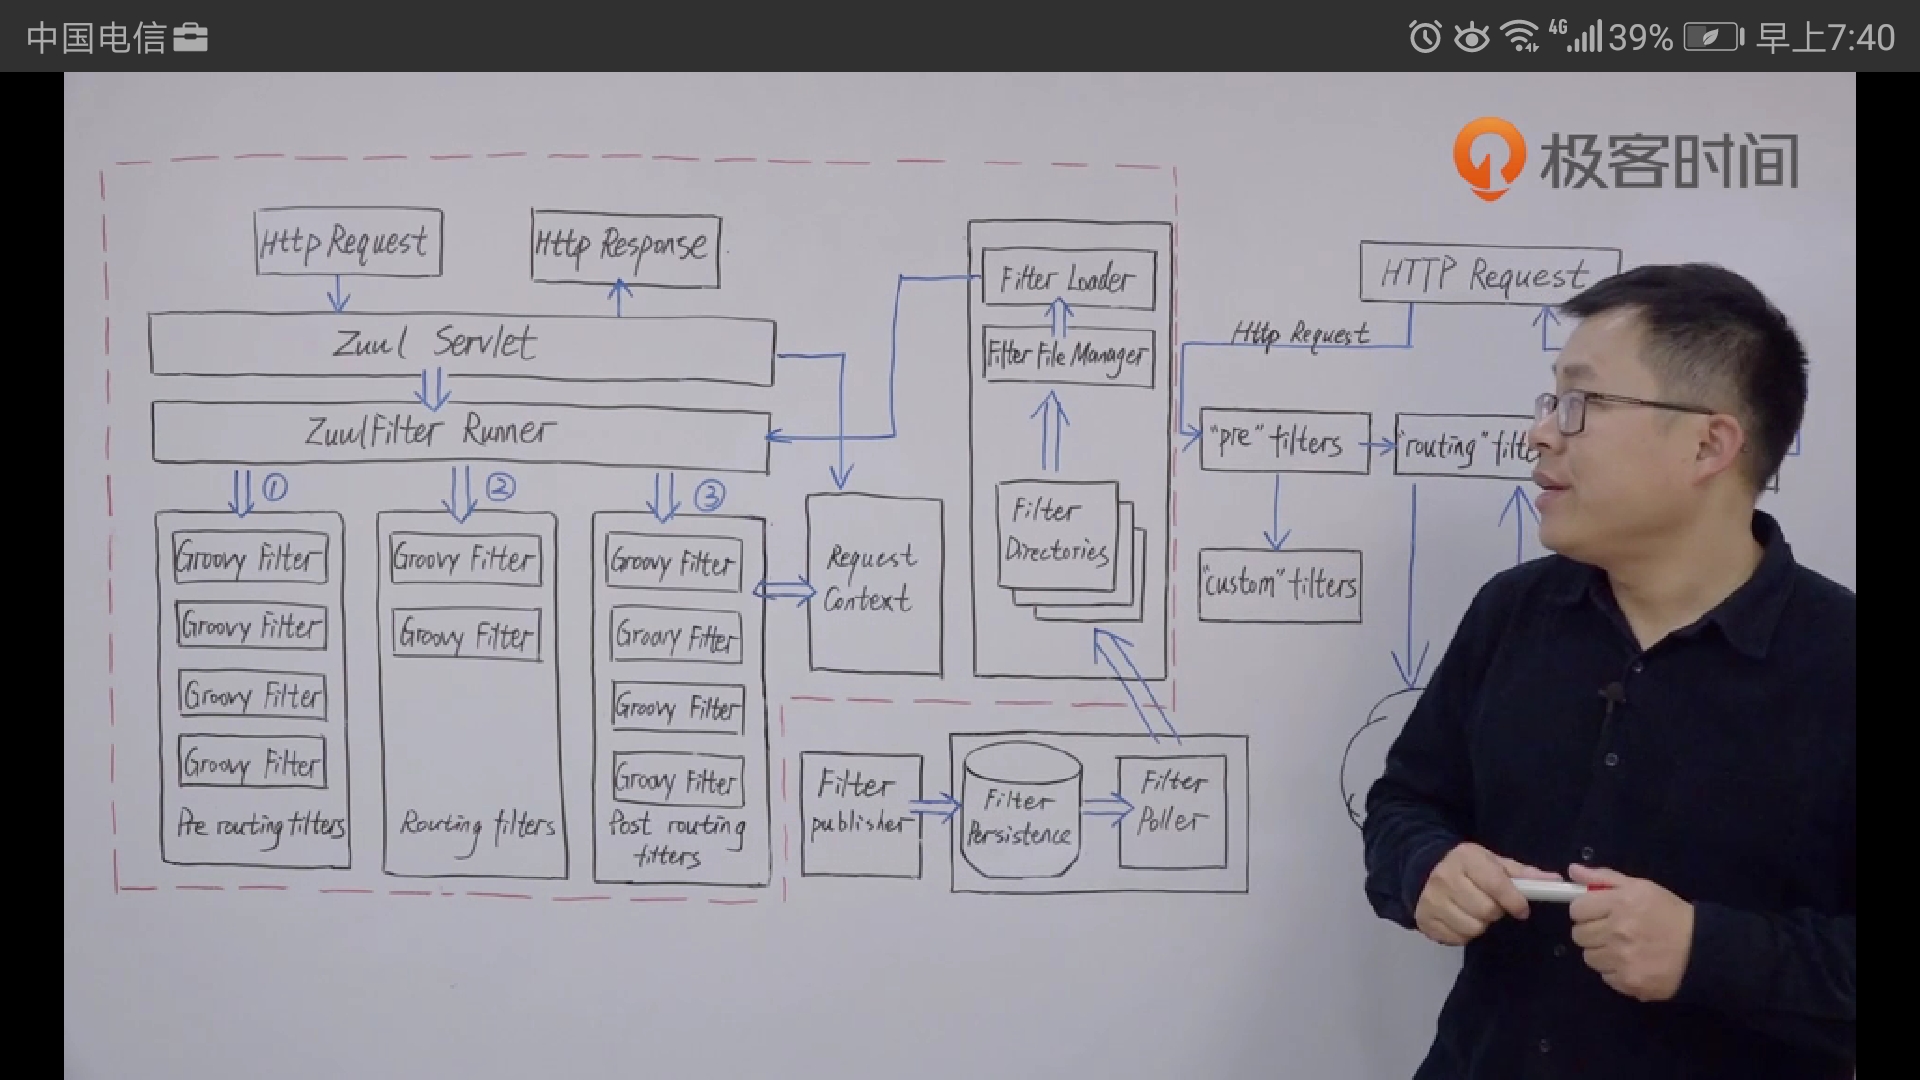 中国电信
4G 39% 早上7:40
极客时间
Http Request
Http Response
Zuul Servlet
ZuulFilter Runner
①
②
③
Groovy Filter
Groovy Filter
Groovy Filter
Groovy Filter
Pre routing filters
Groovy Filter
Groovy Filter
Routing filters
Groovy Filter
Groovy Filter
Groovy Filter
Groovy Filter
Post routing
filters
Request
Context
Filter Loader
Filter File Manager
Filter
Directories
Filter
publisher
Filter
Persistence
Filter
Poller
HTTP Request
Http Request
"pre" filters
"routing" filte
"custom" filters